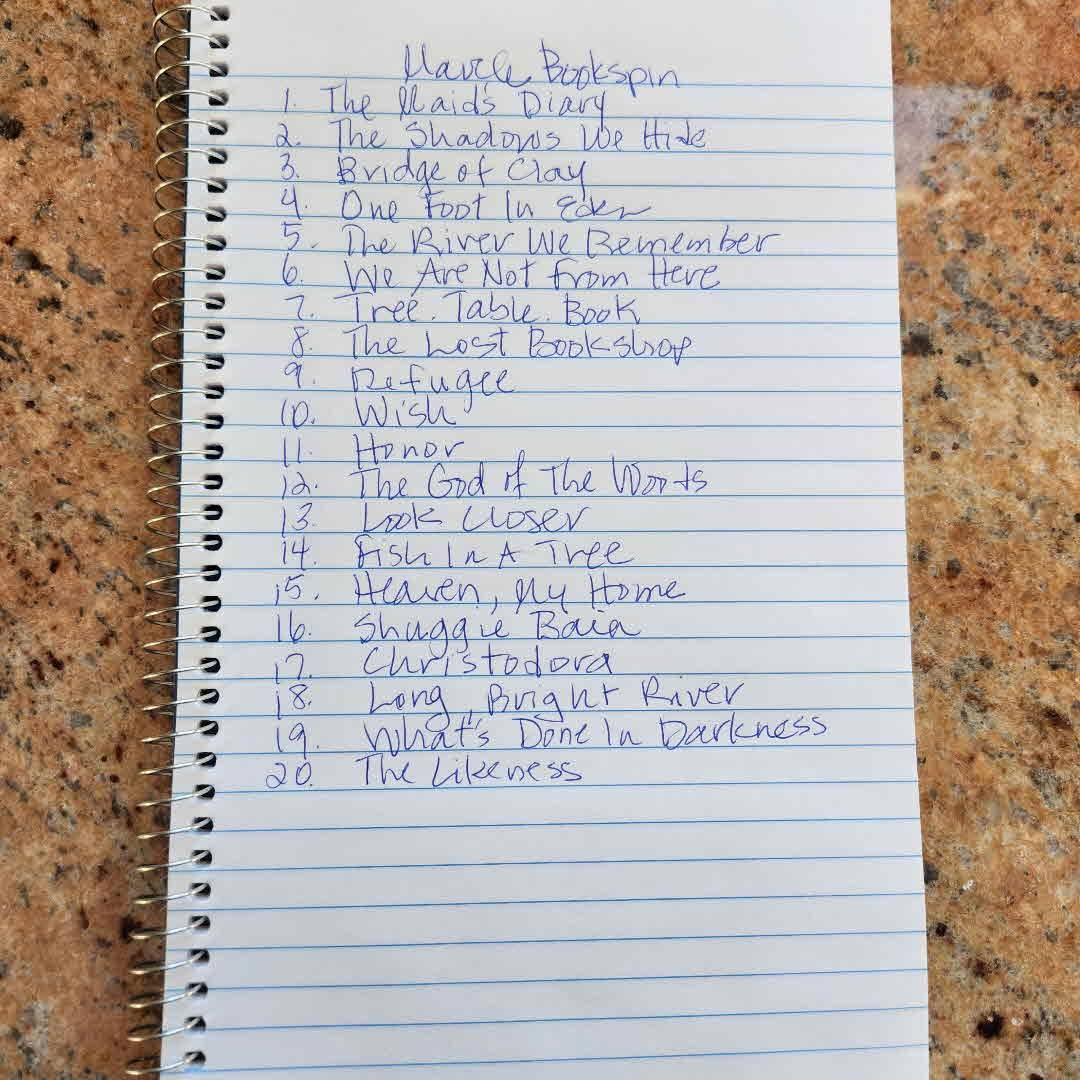 March Bookspin
1. The Maid's Diary
2. The Shadows We Hide
3. Bridge of Clay
4. One Foot In Eden
5. The River We Remember
6. We Are Not From Here
7. Tree. Table. Book
8. The Lost Bookshop
9. Refugee
10. Wish
11. Honor
12. The God of The Woods
13. Look Closer
14. Fish In A Tree
15. Heaven, My Home
16. Shuggie Bain
17. Christodora
18. Long, Bright River
19. What's Done In Darkness
20. The Likeness